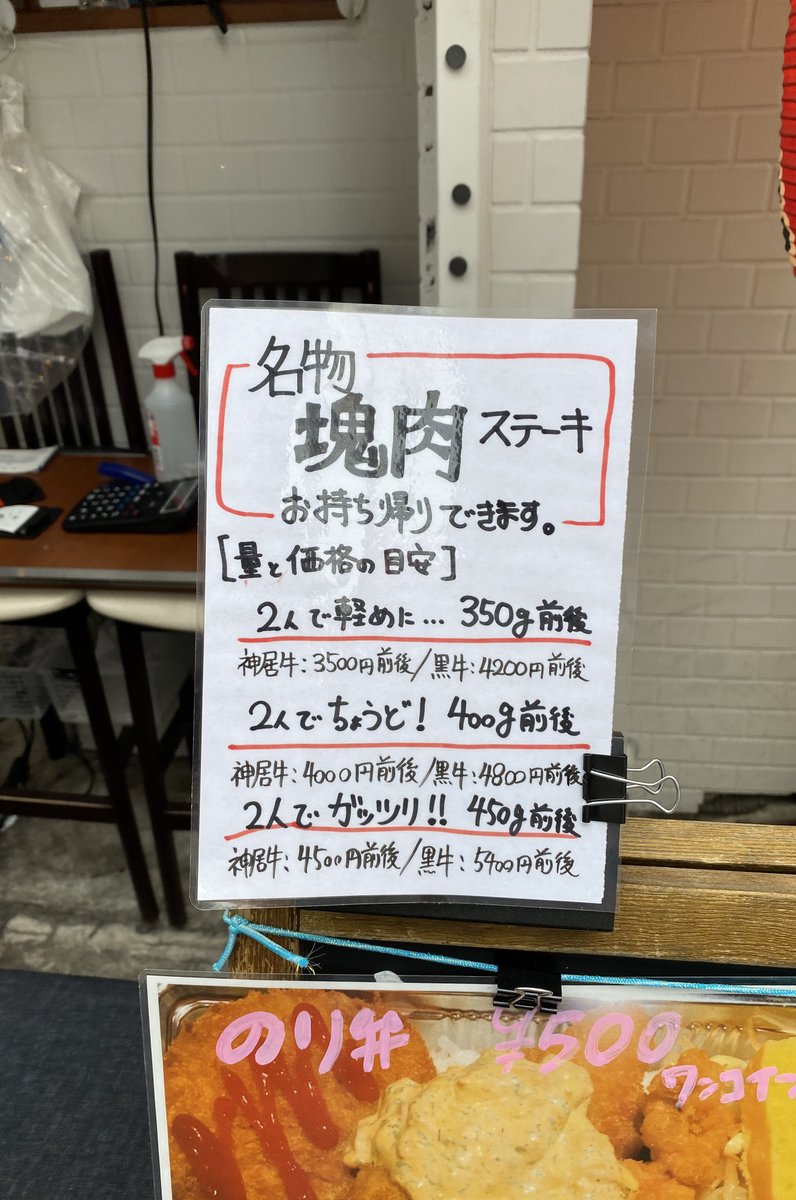 名物
塊肉ステーキ
お持ち帰りできます。
[量と価格の目安]
2人で軽めに… 350g前後
神居牛:3500円前後/黒牛:4200円前後
2人でちょうど! 400g前後
神居牛:4000円前後/黒牛:4800円前後
2人でガッツリ!! 450g前後
神居牛:4500円前後/黒牛:5400円前後
のり弁 ¥500
ワンコイン